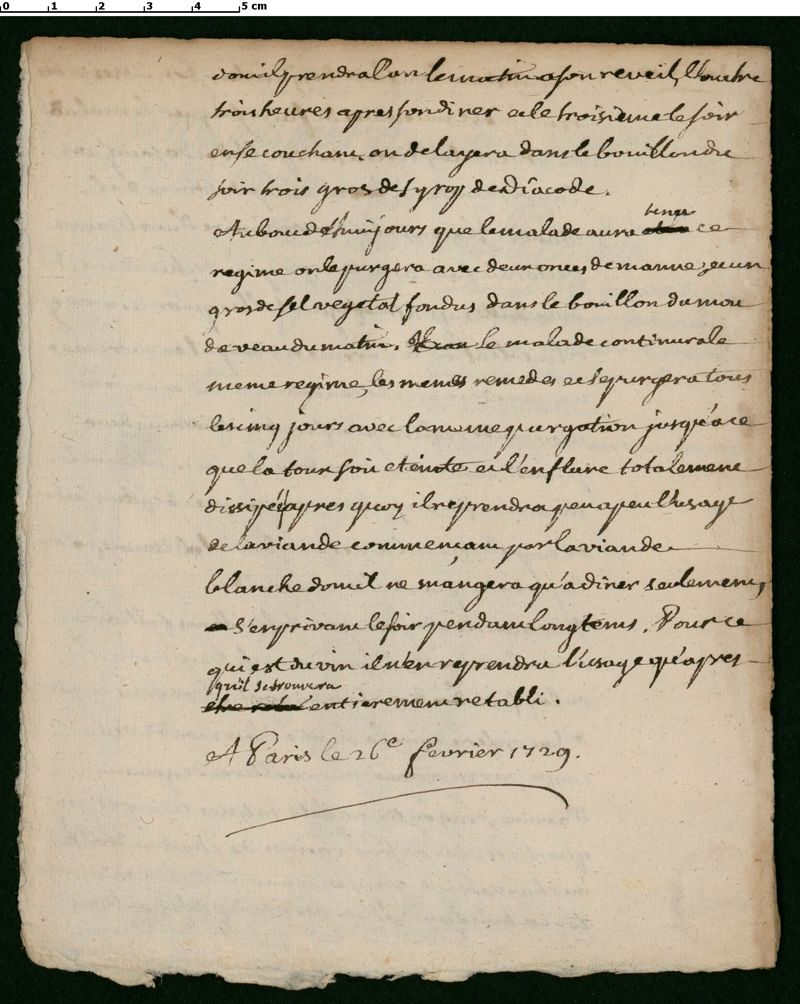 dont il prendra l'un le matin a son reveil, l'autre
trois heures apres son diner et le troisieme le soir
en se couchant, on delayera dans le bouillon du
soir trois gros de syrop de diacode.
Au bout d'huit jours que le malade aura tenu ce
regime on le purgera avec deux onces de manne, et un
gros de sel vegetal fondus dans le bouillon du mou
de veau du matin. le malade continura le
meme regime, les memes remedes et se purgera tous
les cinq jours avec la meme purgation jusqu'a ce
que la toux soit eteinte et l'enflure totalement
dissipée apres quoy il reprendra peu a peu l'usage
de la viande commençant par la viande
blanche dont il ne mangera qu'a diner seulement,
s'en privant le soir pendant longtems. Pour ce
qui est du vin il n'en reprendra l'usage qu'apres
qu'il se trouvera entierement retabli.
A Paris le 26e fevrier 1729.